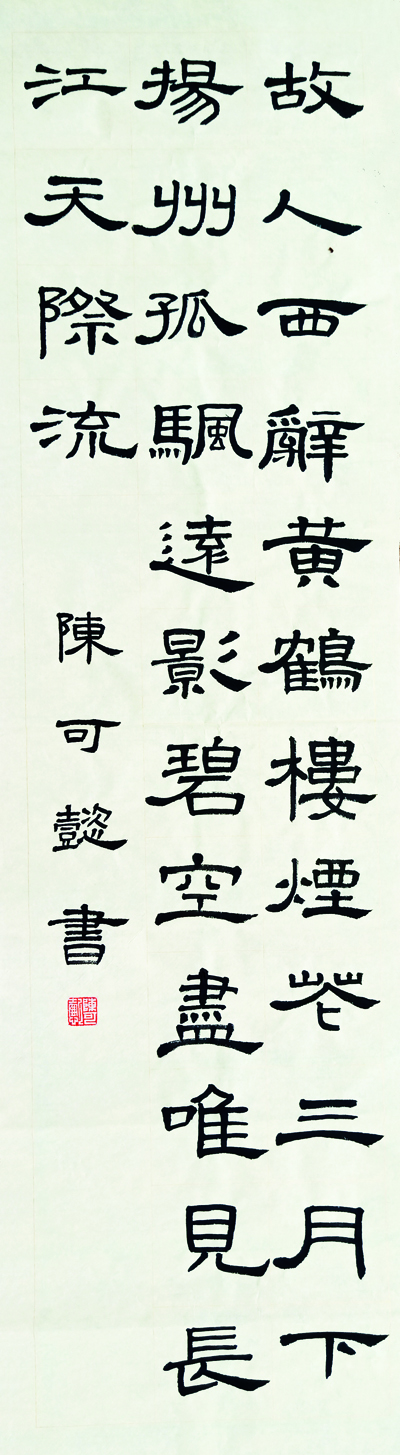 故人西辭黄鶴樓煙花三月下
揚州孤颿遠影碧空盡唯見長
江天際流
陳可懿書